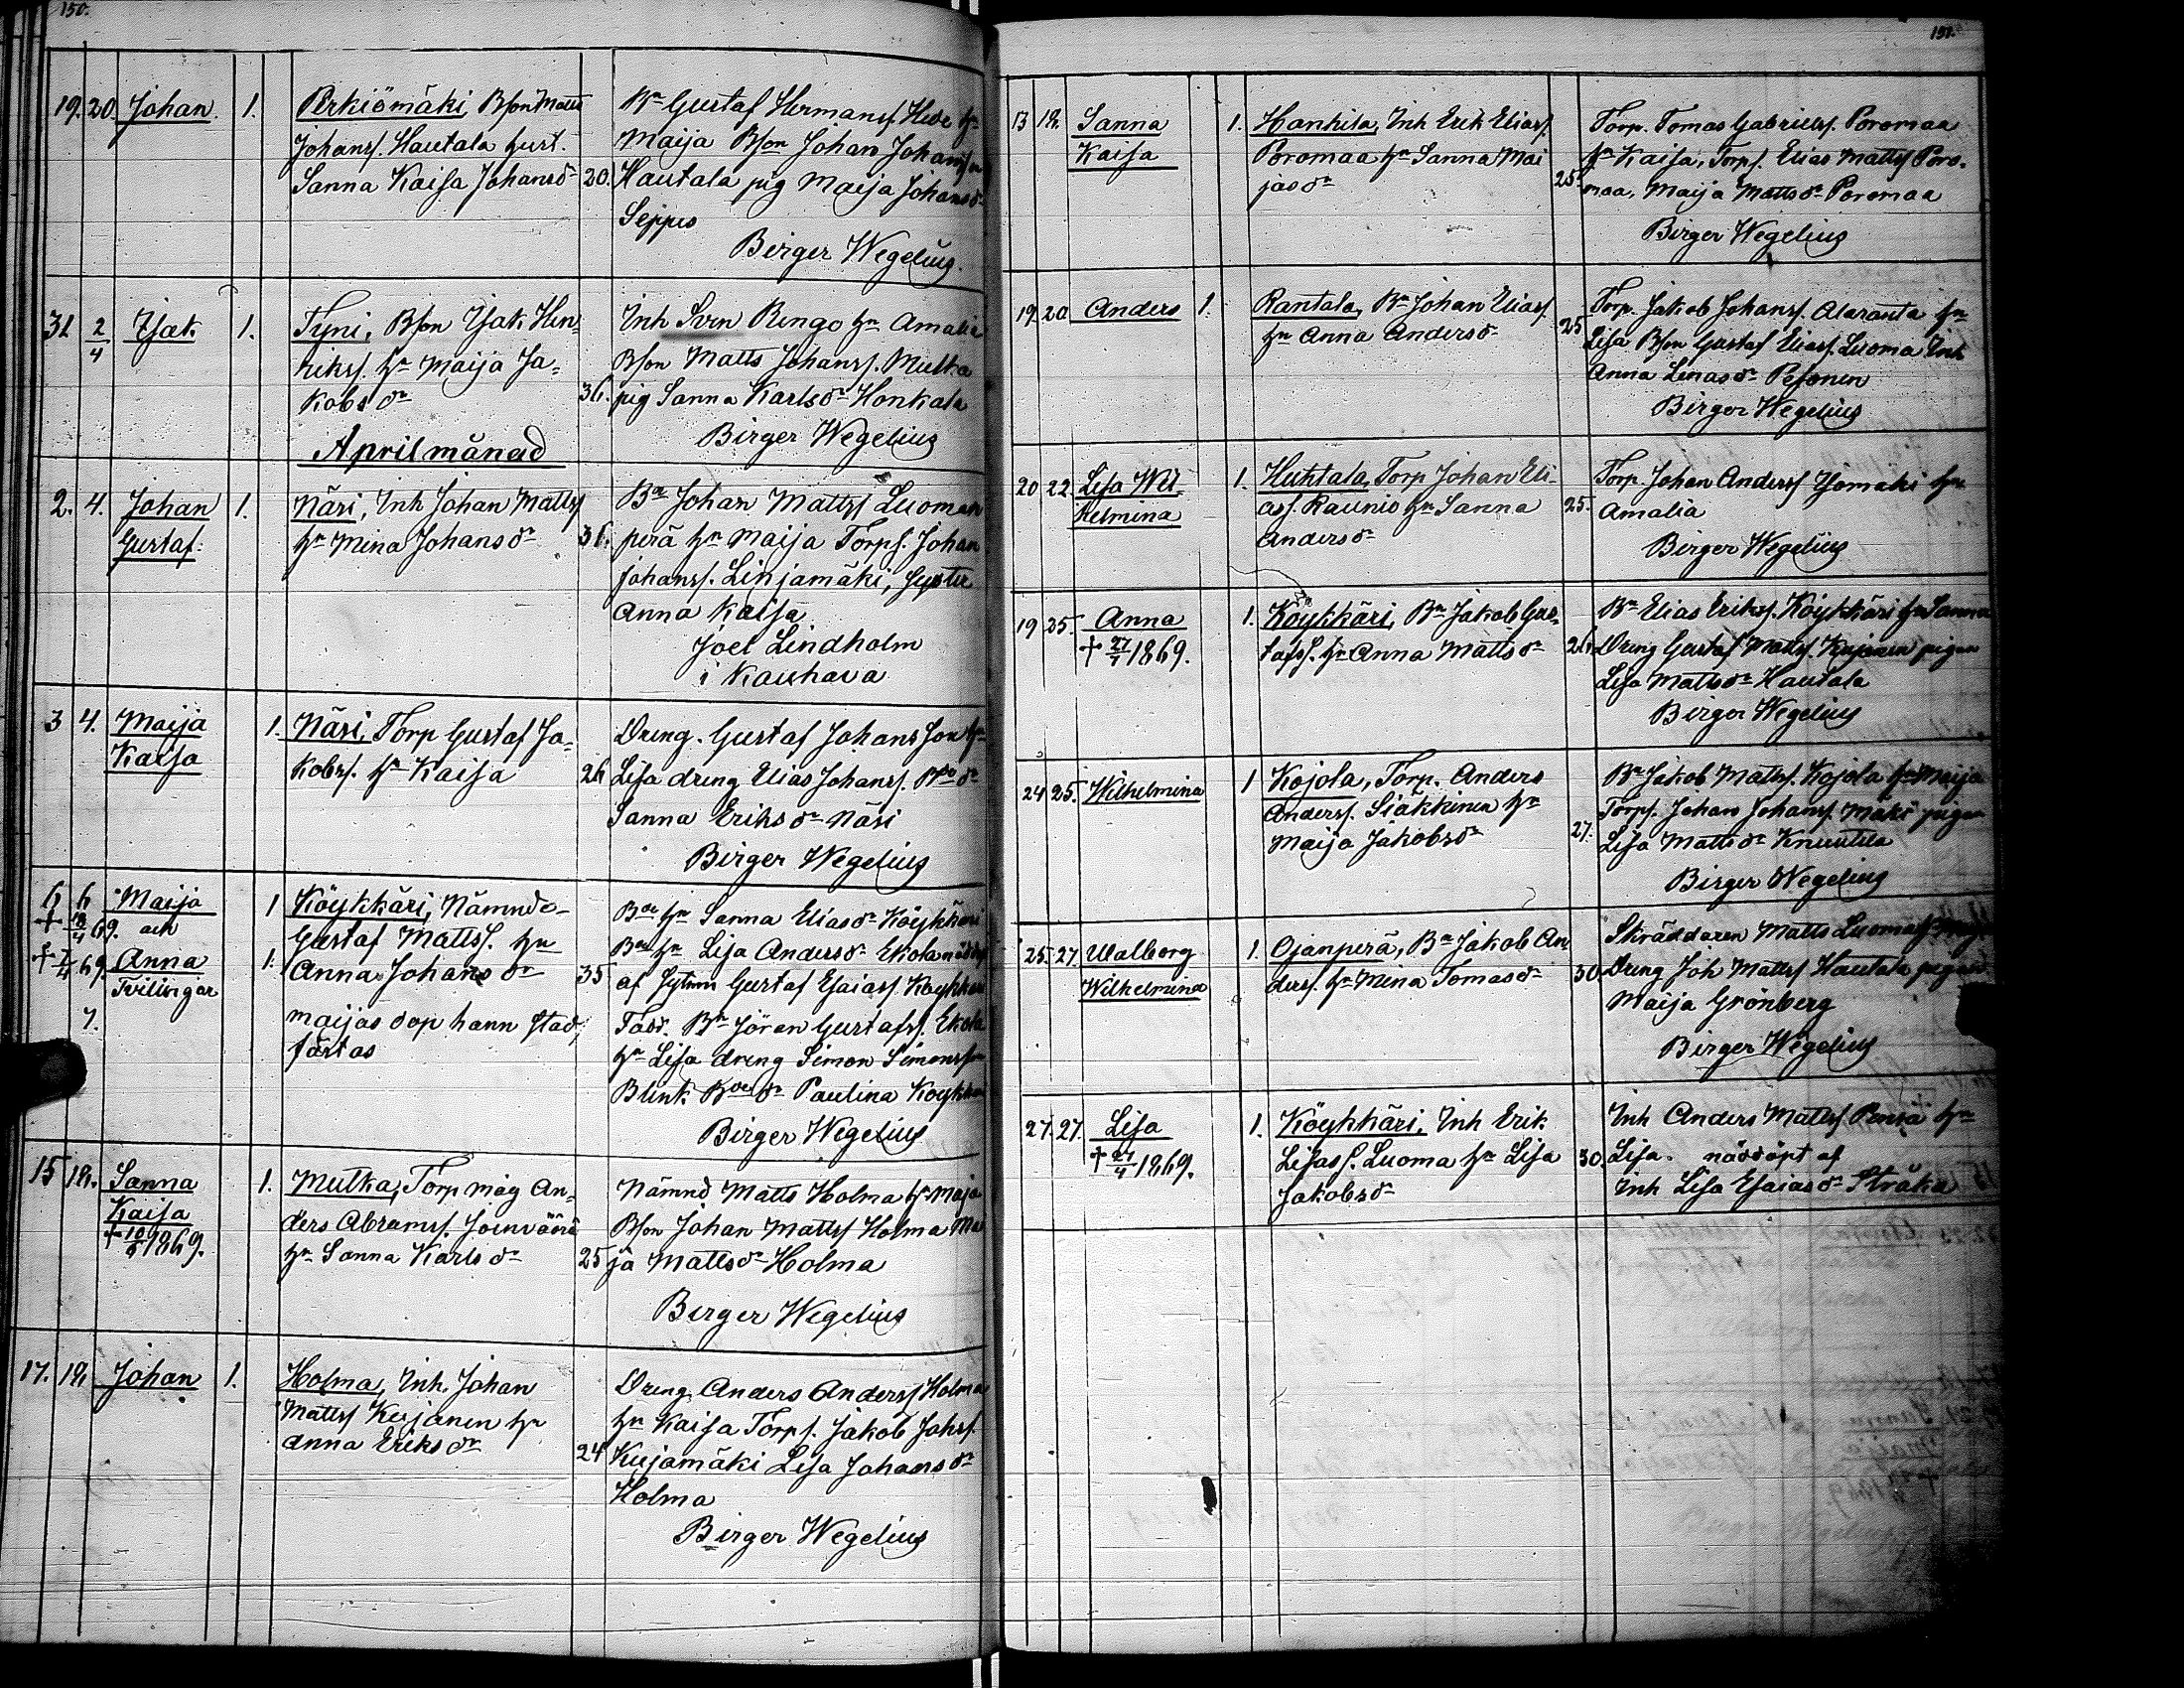 150.
19. 20. Johan. 1. Perkiömäki Bson Matts
Johanss. Hautala hust.
Sanna Kaisa Johansdr 20.
Bn Gustaf Hermanss Hede hn
Maija Bson Johan Johanss
Hautala pig Maija Johansdr
Seppus
Birger Wegelius.
31 2/4 Isak 1. Tyni, Bson Isak Hen=
rikss. hn Maija Ja=
kobsdr 36.
Inh Sven Rengo hn Amalia
Bson Matts Johanss. Mutka
pig Sanna Karlsdr Honkala
Birger Wegelius
April månad
2. 4. Johan
Gustaf. 1. Näri, Inh Johan Mattss
hn Mina Johansdr 36.
Bn Johan Mattss Luoman
perä hn Maija Torps. Johan
Johanss. Linjamäki, Syster
Anna Kaisa
Joel Lindholm
i Kauhava
3 4. Maija
Kaisa 1. Näsi, Torp Gustaf Ja=
kobss. hn Kaisa 26
Dreng. Gustaf Johansson hn
Lisa dreng Elias Johanss. Bdr
Sanna Eriksdr Näsi
Birger Wegelius
6 6 Maija
† 18/4 69. och
† 7/4 69. Anna
Tvilingar
7.
1 Köykkäri, Nämnde-
Gustaf Matts. hn
1. Anna Johansdr 35
Maijas dop hann stad,
fästas
Bn hn Sanna Eliasdr Köykkäri
Bn hn Lisa Andersdr Ekola nöddöpt
af Sytmn Gustaf Esaiass. Köykkäri
Fadd. Bn Jöran Gustafss. Ekola
hn Lisa dreng Simon Simonss
Blink Bdr Paulina Köykkäri
Birger Wegelius
15 18. Sanna
Kaisa
† 10/5 1869. 1. Mutka, Torp måg An=
ders Abramss. Joenväärä
hn Sanna Karlsdr 25
Nämnd Matts Holma hn Maja
Bson Johan Mattss Holma Ma
ja Mattsdr Holma
Birger Wegelius
17. 18. Johan 1. Holma, Inh. Johan
Mattss Kujanen hn
Anna Eriksdr 24
Dreng Anders Anderss Holma
hn Kaisa Torps. Jakob Johss.
Kujamäki Lisa Johansdr
Holma
Birger Wegelius
151.
13 18. Sanna
Kaisa 1. Hankila, Inh Erik Eliass.
Poromaa hn Sanna Mai
jasdr 25.
Torp. Tomas Gabrielss. Poromaa
hn Kaisa, Torps. Elias Mattss Poro-
maa, Maija Mattsdr Poromaa
Birger Wegelius
19 20 Anders 1. Rantala, Bn Johan Eliass.
hn Anna Andersdr 25
Torp. Jakob Johanss. Alaranta hn
Lisa Bson Gustaf Eliass. Luoma Inh
Anna Lenasdr Pesonen
Birger Wegelius
20 22. Lisa Wil-
helmina 1. Huhtala, Torp Johan Eli-
ass. Raunio hn Sanna
Andersdr 25.
Torp. Johan Anderss Isomäki hn
Amalia
Birger Wegelius
19 25. Anna
† 27/4 1869. 1. Köykkäri, Bn Jakob Gus-
tafss. hn Anna Mattsdr 26.
Bn Elias Erikss. Köykkäri hn Sanna
Dreng Gustaf Mattss. Kujanen pigan
Lisa Mattsdr Hautala
Birger Wegelius
24 25. Wilhelmina 1 Kojola, Torp. Anders
Anderss. Siäkkinen hn
Maija Jakobsdr 27.
Bn Jakob Mattss. Kojola hn Maija
Torps. Johan Johanss. Mäki pigan
Lisa Mattsdr Knuutila
Birger Wegelius
25. 27. Walborg
Wilhelmina 1. Ojanperä, Bn Jakob An
derss. hn Mina Tomasdr 30.
Skräddaren Matts Luoma
Dreng Joh Mattss Hautala pigan
Maija Grönberg
Birger Wegelius
27. 27. Lisa
† 27/4 1869. 1. Köykkäri, Inh Erik
Lisass. Luoma hn Lisa
Jakobsdr 30.
Inh Anders Mattss Penxä hn
Lisa. nöddöpt af
Inh Lisa Esaiasdr Stråka